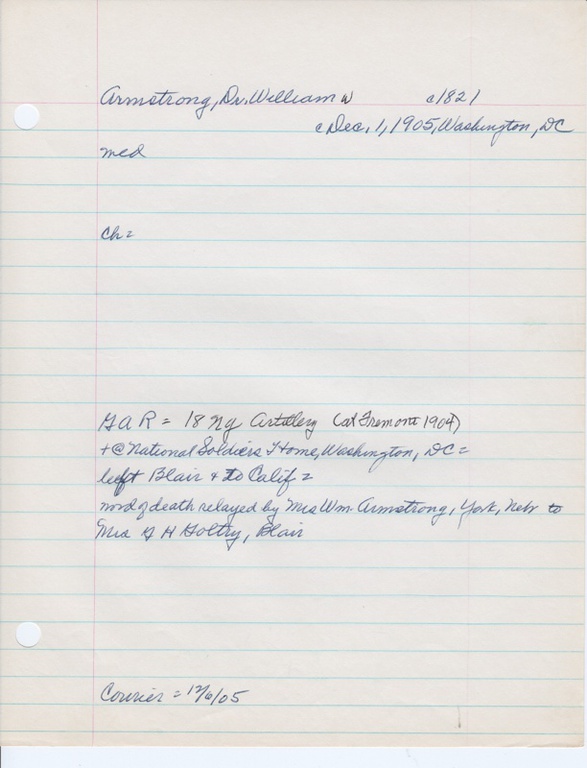 Armstrong, Dr. William W c1821
c Dec. 1, 1905, Washington, DC
med
Ch =
G A R = 18 NY Artillery (at Fremont 1904)
+ @ National Soldiers Home, Washington, DC =
left Blair + to Calif =
word of death relayed by Mrs Wm Armstrong, York, Nebr to
Mrs G H Goltry, Blair
Courier = 12/6/05